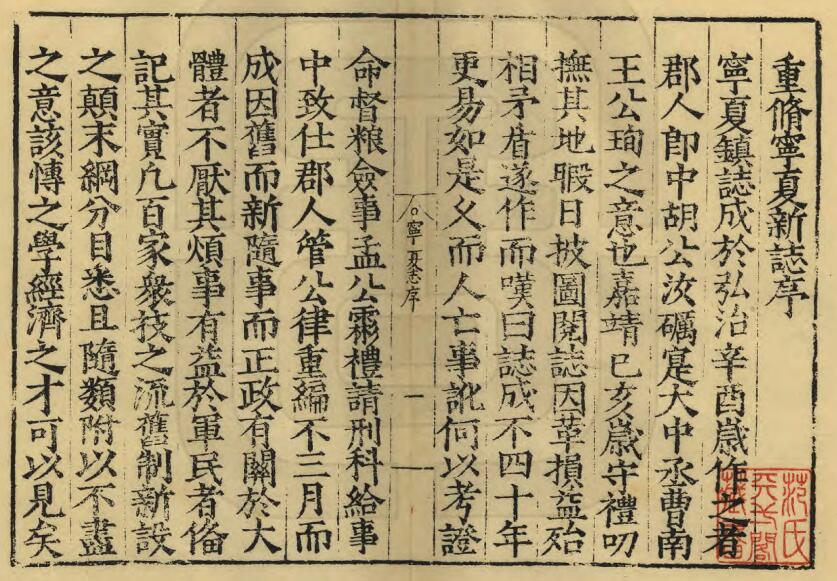 重脩寧夏新誌序
寧夏鎮誌成於弘治辛酉歲作之者
郡人郎中胡公汝礪寔大中丞曹南
王公珣之意也嘉靖己亥歲守禮叨
撫其地暇日披圖閱誌因革損益殆
相矛盾遂作而嘆曰誌成不四十年
更易如是乆而人亡事訛何以考證
寧夏志序
一
命督粮僉事孟公霦禮請刑科給事
中致仕郡人管公律重編不三月而
成因舊而新隨事而正政有關於大
體者不厭其煩事有益於軍民者偹
記其實凢百家衆技之流舊制新設
之顛末綱分目悉且隨類附以不盡
之意該愽之學經濟之才可以見矣
范氏
天一閣
藏書